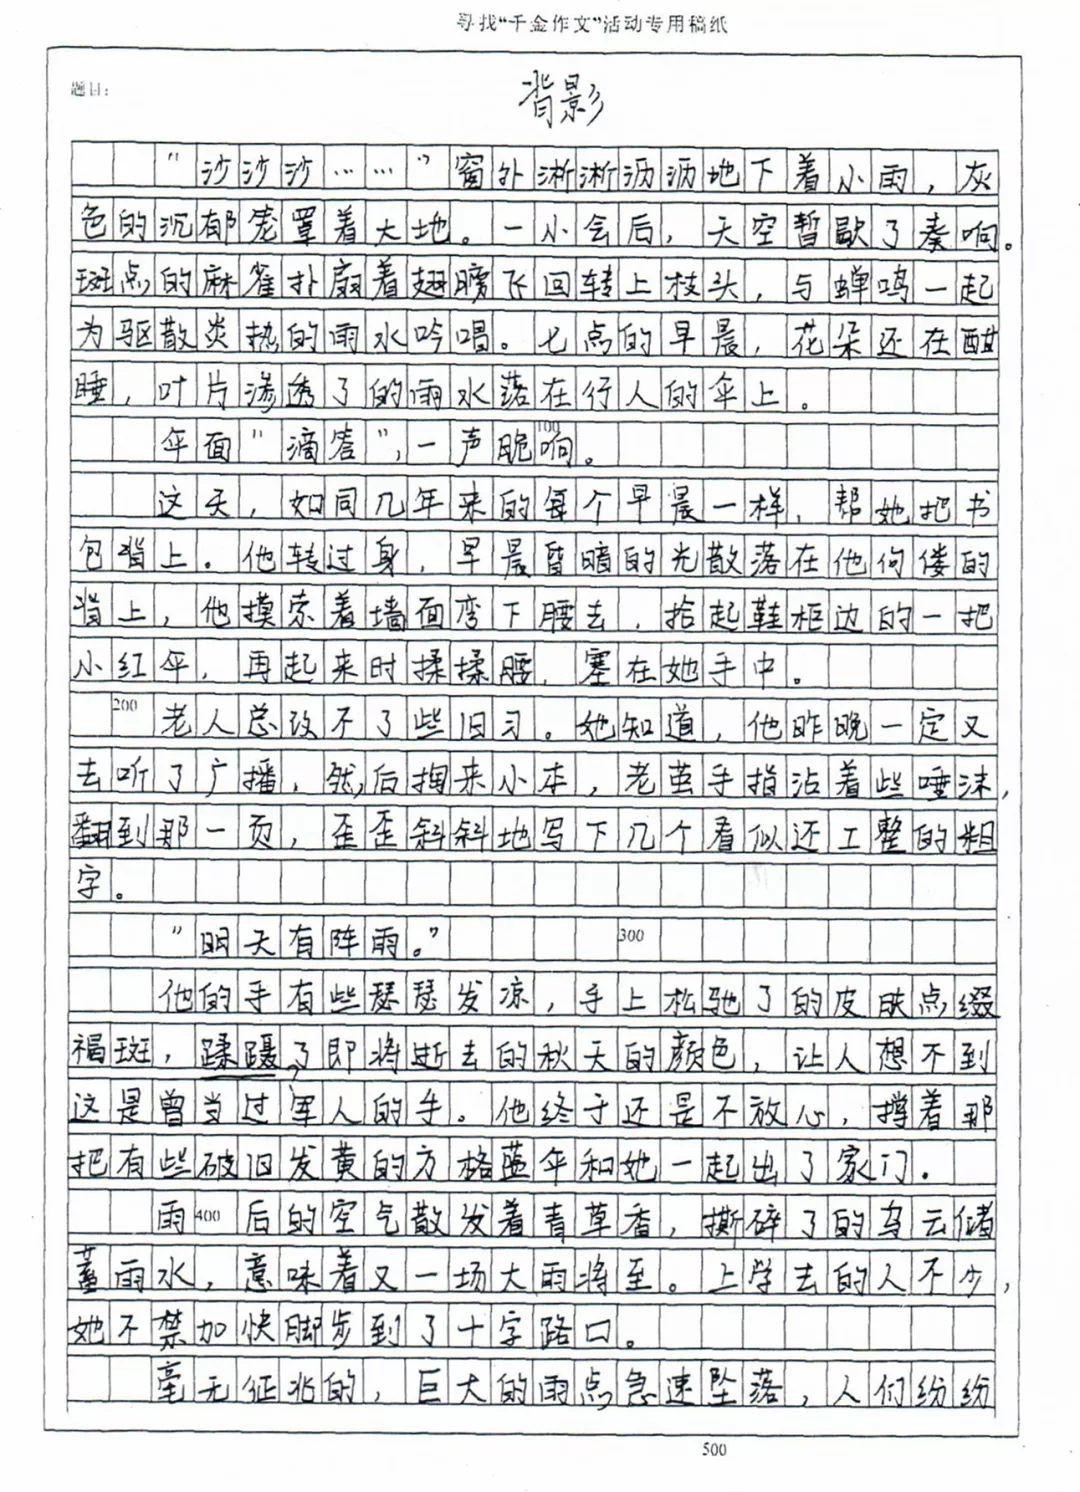 寻找“千金作文”活动专用稿纸
题目：
背影
“沙沙沙……”窗外淅淅沥沥地下着小雨，灰
色的沉郁笼罩着大地。一小会后，天空暂歇了奏响。
斑点的麻雀扑扇着翅膀飞回转上枝头，与蝉鸣一起
为驱散炎热的雨水吟唱。七点的早晨，花朵还在酣
睡，叶片渗透了的雨水落在行人的伞上。
伞面“滴答”，一声脆响。
100
这天，如同几年来的每个早晨一样，帮她把书
包背上。他转过身，早晨昏暗的光散落在他佝偻的
背上，他摸索着墙面弯下腰去，拾起鞋柜边的一把
小红伞，再起来时揉揉腰，塞在她手中。
200
老人总改不了些旧习。她知道，他昨晚一定又
去听了广播，然后掏来小本，老茧手指沾着些唾沫，
翻到那一页，歪歪斜斜地写下几个看似还工整的粗
字。
“明天有阵雨。”
300
他的手有些瑟瑟发凉，手上松驰了的皮肤点缀
褐斑，蹂蹑了即将逝去的秋天的颜色，让人想不到
这是曾当过军人的手。他终于还是不放心，撑着那
把有些破旧发黄的方格蓝伞和她一起出了家门。
雨后的空气散发着青草香，撕碎了的乌云储
400
蓄雨水，意味着又一场大雨将至。上学去的人不少，
她不禁加快脚步到了十字路口。
毫无征兆的，巨大的雨点急速坠落，人们纷纷
500